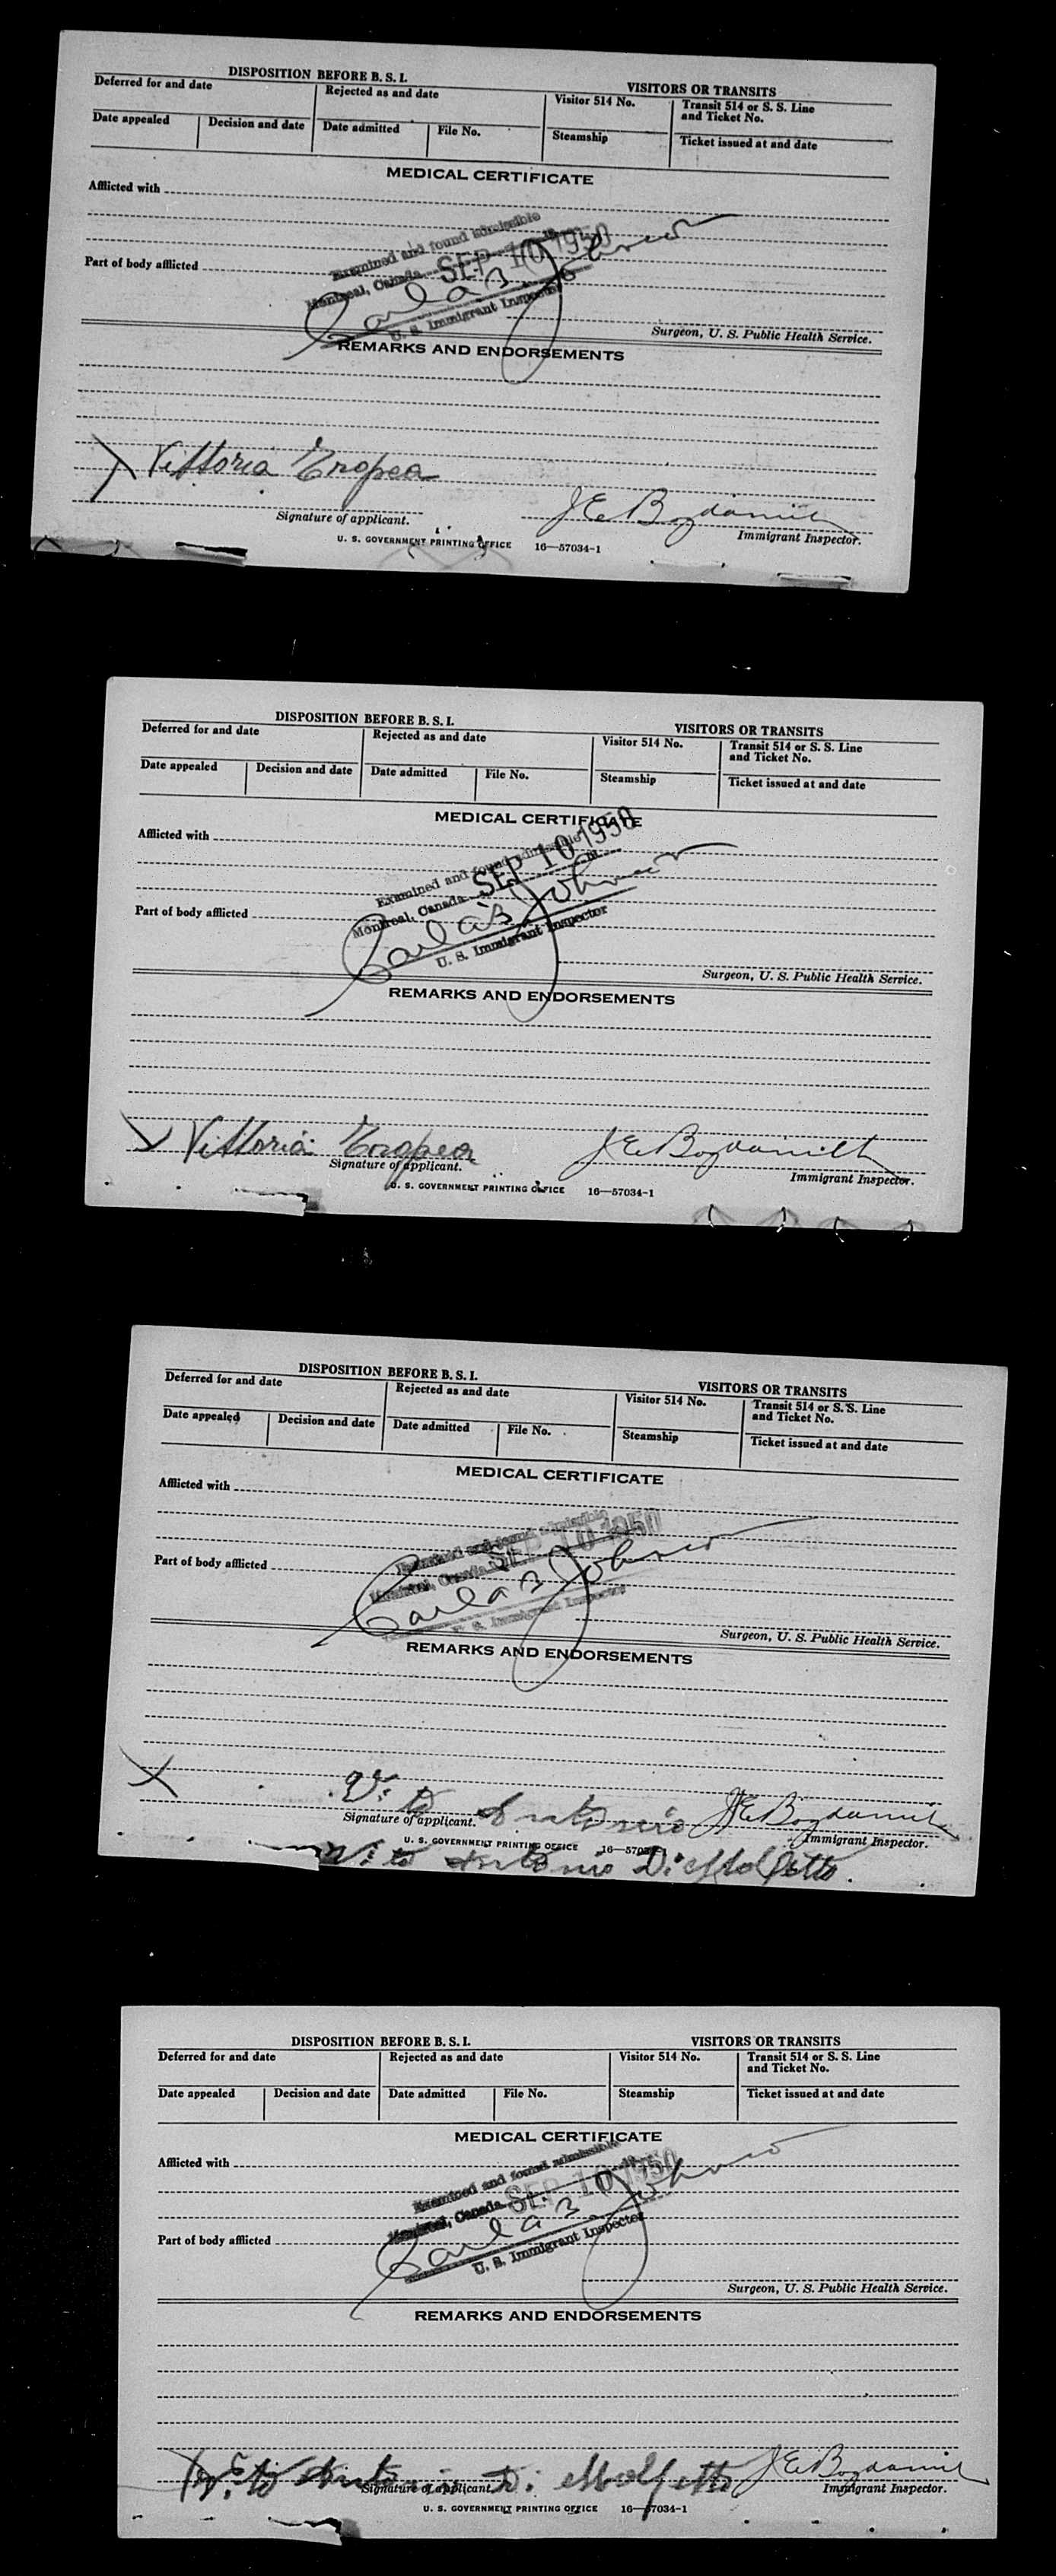 DISPOSITION BEFORE B. S. I.
VISITORS OR TRANSITS
Deferred for and date
Rejected as and date
Visitor 514 No.
Transit 514 or S. S. Line
and Ticket No.
Date appealed
Decision and date
Date admitted
File No.
Steamship
Ticket issued at and date
MEDICAL CERTIFICATE
Afflicted with
Examined and found admissible
Montreal, Canada SEP 10 1950
Part of body afflicted
U. S. Immigrant Inspector
Surgeon, U. S. Public Health Service.
REMARKS AND ENDORSEMENTS
X Vittoria Tropea
Signature of applicant.
Immigrant Inspector.
U. S. GOVERNMENT PRINTING OFFICE 16—57034-1
DISPOSITION BEFORE B. S. I.
VISITORS OR TRANSITS
Deferred for and date
Rejected as and date
Visitor 514 No.
Transit 514 or S. S. Line
and Ticket No.
Date appealed
Decision and date
Date admitted
File No.
Steamship
Ticket issued at and date
MEDICAL CERTIFICATE
Afflicted with
Examined and found admissible
Montreal, Canada SEP 10 1950
Part of body afflicted
Johnson
U. S. Immigrant Inspector
Surgeon, U. S. Public Health Service.
REMARKS AND ENDORSEMENTS
X Vittoria Tropea
Signature of applicant.
Immigrant Inspector.
U. S. GOVERNMENT PRINTING OFFICE 16—57034-1
DISPOSITION BEFORE B. S. I.
VISITORS OR TRANSITS
Deferred for and date
Rejected as and date
Visitor 514 No.
Transit 514 or S. S. Line
and Ticket No.
Date appealed
Decision and date
Date admitted
File No.
Steamship
Ticket issued at and date
MEDICAL CERTIFICATE
Afflicted with
Examined and found admissible
Montreal, Canada SEP 10 1950
Part of body afflicted
Johnson
U. S. Immigrant Inspector
Surgeon, U. S. Public Health Service.
REMARKS AND ENDORSEMENTS
X Vito Antonio
Signature of applicant.
Immigrant Inspector.
U. S. GOVERNMENT PRINTING OFFICE 16—570
Vito Antonio Di Molfetta.
DISPOSITION BEFORE B. S. I.
VISITORS OR TRANSITS
Deferred for and date
Rejected as and date
Visitor 514 No.
Transit 514 or S. S. Line
and Ticket No.
Date appealed
Decision and date
Date admitted
File No.
Steamship
Ticket issued at and date
MEDICAL CERTIFICATE
Afflicted with
Examined and found admissible
Montreal, Canada SEP 10 1950
Part of body afflicted
Johnson
U. S. Immigrant Inspector
Surgeon, U. S. Public Health Service.
REMARKS AND ENDORSEMENTS
X Vito Antonio Di Molfetta
Signature of applicant.
Immigrant Inspector.
U. S. GOVERNMENT PRINTING OFFICE 16—57034-1